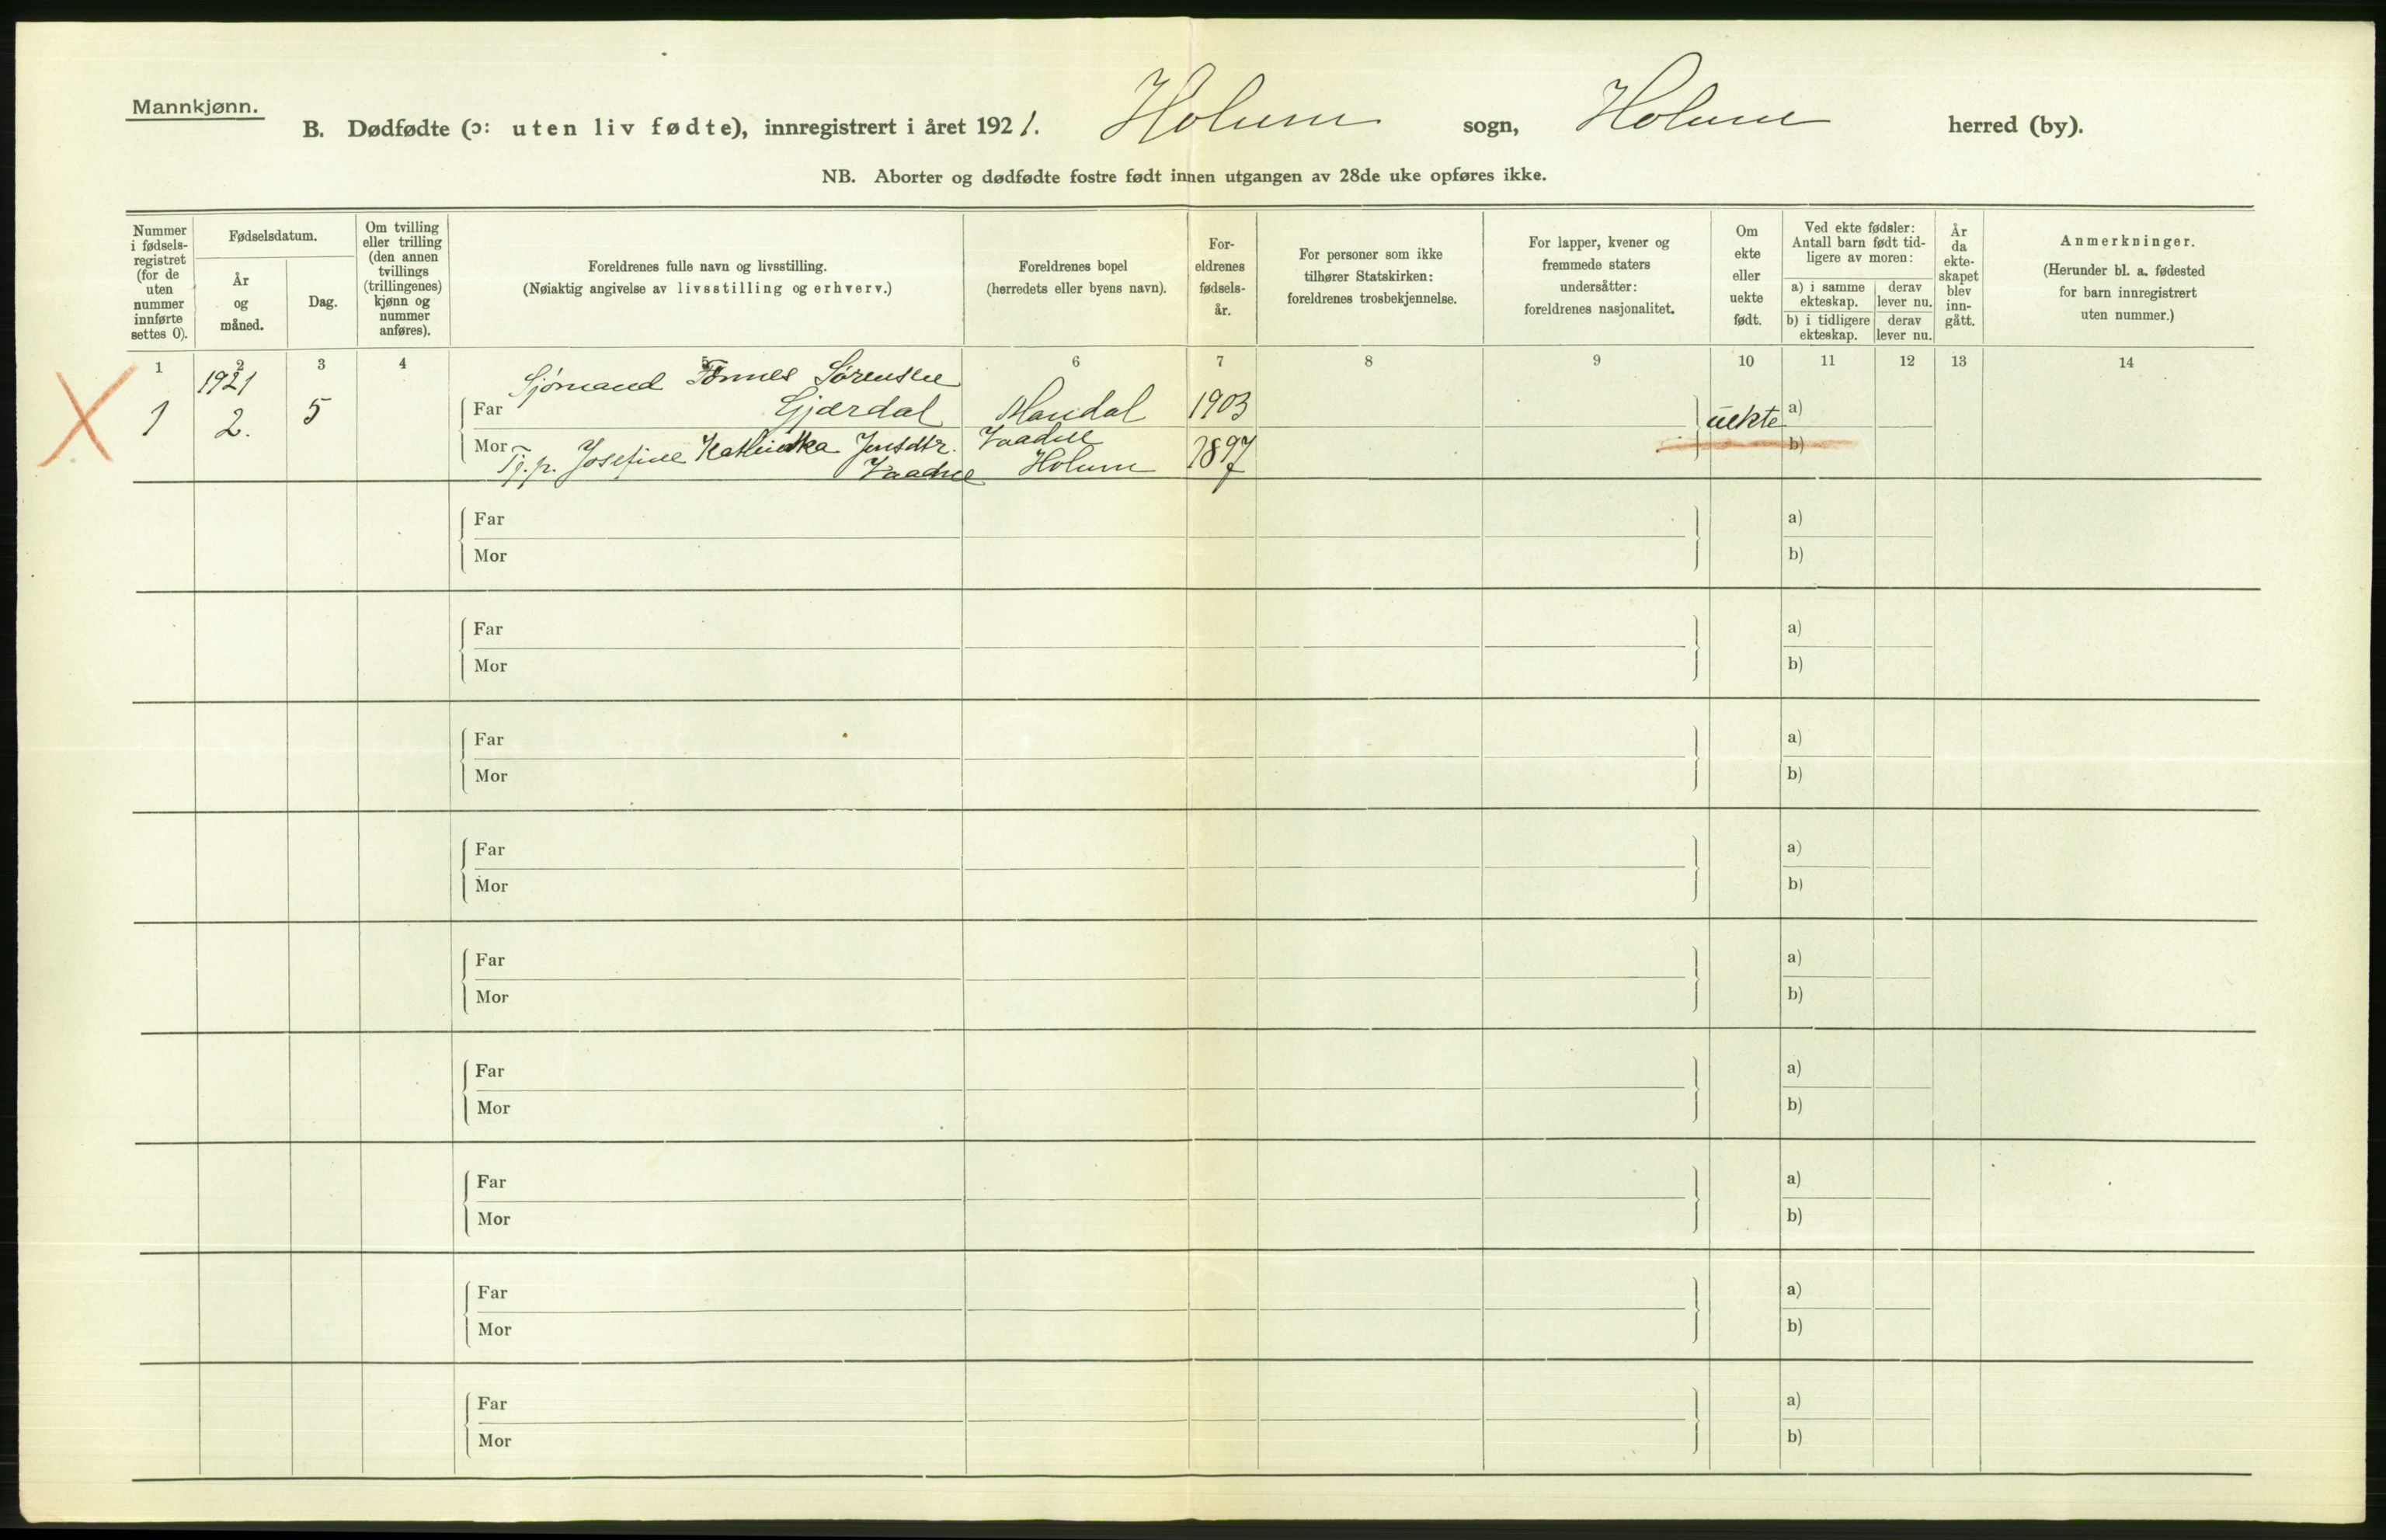 Mannkjønn.
B. Dødfødte (ɔ: uten liv fødte), innregistrert i året 1921. Holum sogn, Holum herred (by).
NB. Aborter og dødfødte fostre født innen utgangen av 28de uke opføres ikke.
Nummer i fødsels-registret (for de uten nummer innførte settes 0).
Fødselsdatum.
År og måned.
Dag.
Om tvilling eller trilling (den annen tvillings (trillingenes) kjønn og nummer anføres).
Foreldrenes fulle navn og livsstilling.
(Nøiaktig angivelse av livsstilling og erhverv.)
Foreldrenes bopel
(herredets eller byens navn).
For-eldrenes fødsels-år.
For personer som ikke tilhører Statskirken: foreldrenes trosbekjennelse.
For lapper, kvener og fremmede staters undersåtter: foreldrenes nasjonalitet.
Om ekte eller uekte født.
Ved ekte fødsler: Antall barn født tid-ligere av moren:
a) i samme ekteskap.
derav lever nu.
b) i tidligere ekteskap.
derav lever nu.
År da ekte-skapet blev inn-gått.
Anmerkninger.
(Herunder bl. a. fødested for barn innregistrert uten nummer.)
1 2 3 4 5 6 7 8 9 10 11 12 13 14
1921 Sjømand Tønnes Sørensen
1 2. 5 Far Gjærdal Mandal 1903 uekte a)
Mor Tj.p. Josefine Kathinka Jensdtr. Vaadne 1897 b)
Vaadne Holum
Far a)
Mor b)
Far a)
Mor b)
Far a)
Mor b)
Far a)
Mor b)
Far a)
Mor b)
Far a)
Mor b)
Far a)
Mor b)
Far a)
Mor b)
Far a)
Mor b)